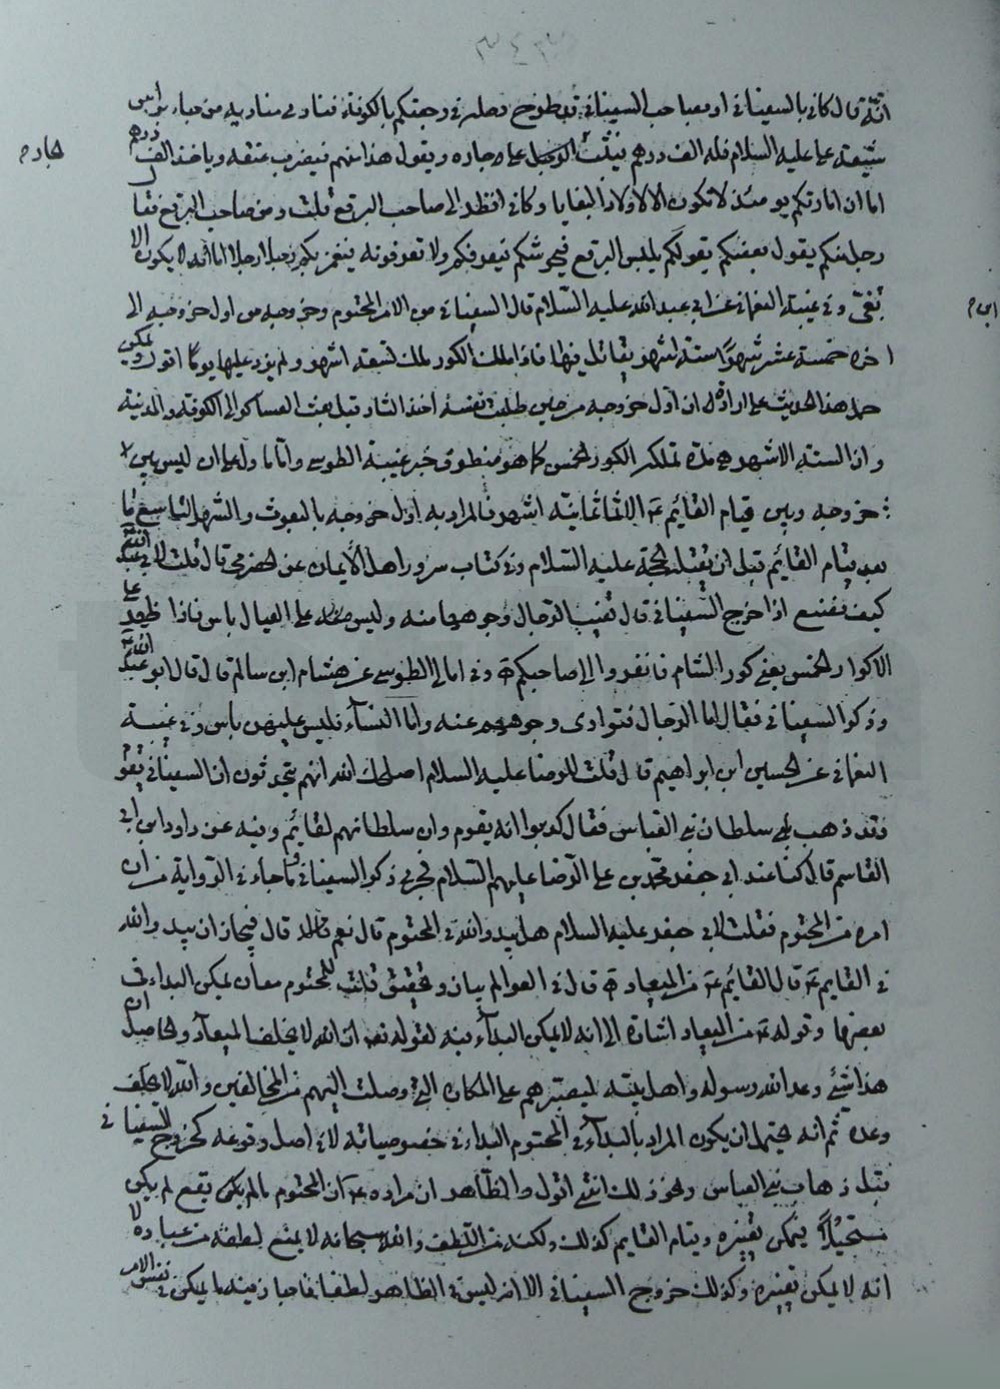 انّه قال كاني بالسفياني او بصاحب السفياني قد طرح رحله في رحبتكم بالكوفة فنادى مناديه من جاء براس
شيعة علي عليه السلام فله الف درهم فيثب الرجل على جاره ويقول هذا منهم فيضرب عنقه وياخذ الف درهم
اما ان امارتكم يومئذ لا تكون الا لاولاد البغايا وكاني انظر الى صاحب البرقع قلت ومن صاحب البرقع فقال
رجل منكم يقول بقولكم يلبس البرقع فيحوشكم فيعرفكم ولا تعرفونه فيغمز بكم رجلا رجلا اما انه لا يكون الا
ابن
بغيّ وفي غيبة النعماني عن ابي عبد الله عليه السّلام قال السفياني من الامر المحتوم وخروجه من اول خروجه الى
اخره خمسة عشر شهرًا ستة اشهر يقاتل فيها فاذا ملك الكور الخمس ملك تسعة اشهر ولم يزد عليها يومًا اقول ويمكن
حمل هذا الحديث على ارادة ان اول خروجه من حين طلبت نفسه اخذ الثار قبل بعث العساكر الى الكوفة والمدينة
وان الستة الاشهر هي مدة تملكه الكور الخمس كما هو منطوق خبر غيبة الطوسي وامّا ما دلّ على ان ليس بين
خروجه وبين قيام القائم الا ثمانية اشهر فالمراد به اول خروجه بالبعوث والشهر التاسع
بعد قيام القائم قبل ان يقتله الحجة عليه السّلام وفي كتاب سرور اهل الأيمان عن الحضرمي قال قلت لابي عبد الله
كيف نصنع اذا خرج السّفياني قال تغيب الرجال وجوهها منه وليس على العيال باس فاذا ظهر على
الاكوار الخمس يعني كور الشام فانفروا الى صاحبكم وفي امالي الطوسي عن هشام ابن سالم قال قال ابو عبد الله
وذكر السفياني فقال اما الرجال فتوارى وجوهها عنه وامّا النسآء فليس عليهن باس وفي غيبة
النعماني عن الحسين ابن ابراهيم قال قلت للرضا عليه السلام اصلحك الله انهم يتحدثون ان السفياني يقوم
وقد ذهب سلطان بني العباس فقال كذبوا انه يقوم وان سلطانهم لقائم وفيه عن داود ابن ابي
القاسم قال كنا عند ابي جعفر محمد بن علي الرّضا عليهم السّلام فجرى ذكر السفياني وما جاء في الرّواية من ان
امره من المحتوم فقلت لابي جعفر عليه السلام هل يبدو لله في المحتوم قال نعم قلنا له قال فنخاف ان يبدو لله
في القايم قال القائم من الميعاد قال في العوالم بيان وتحقيق قلت للمحتوم معان يمكن البداء في
بعضها وقوله من الميعاد اشارة الى انه لا يمكن البدآء فيه لقوله تعالى ان الله لا يخلف الميعاد والحاصل ان
هذا شئ وعد الله رسوله واهل بيته لصبرهم على المكاره التي وصلت اليهم من المخالفين والله لا يخلف
وعده ثم انه يحتمل ان يكون المراد بالبدآء في المحتوم البداء في خصوصياته لا في اصل وقوعه كخروج السفياني
قبل ذهاب بني العباس ونحو ذلك انتهى اقول والظاهر ان مراده ان المحتوم ما لم يكن يقع لم يكن
مستحيلًا يمكن تغييره وقيام القايم كذلك ولكنه من اللّطف والله سبحانه لا يمنع لطفه من عباده لا
انه لا يمكن تغييره وكذلك خروج السفياني الا انه ليس في الظاهر لطفا فاجاز فيه ما يمكن في نفس الامر